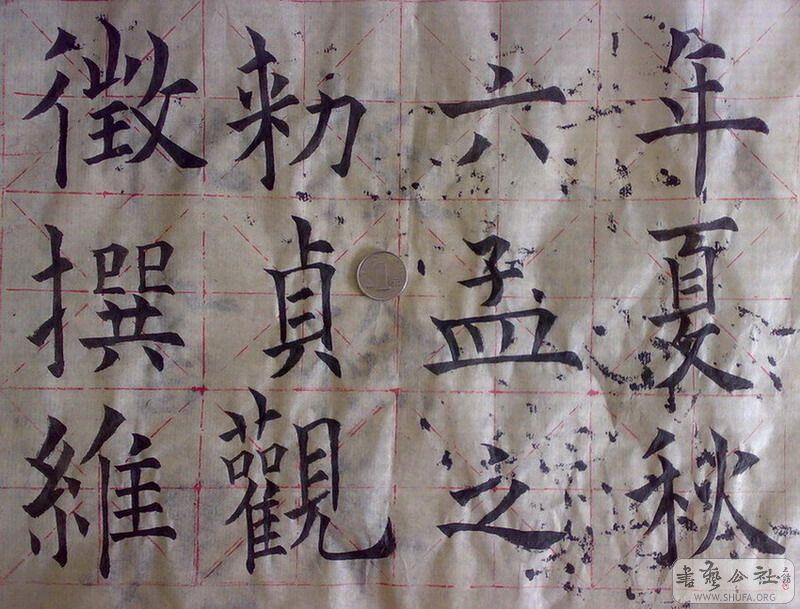 徵勑六年
撰貞孟夏
維觀之秋
書藝公社
WWW.SHUFA.ORG